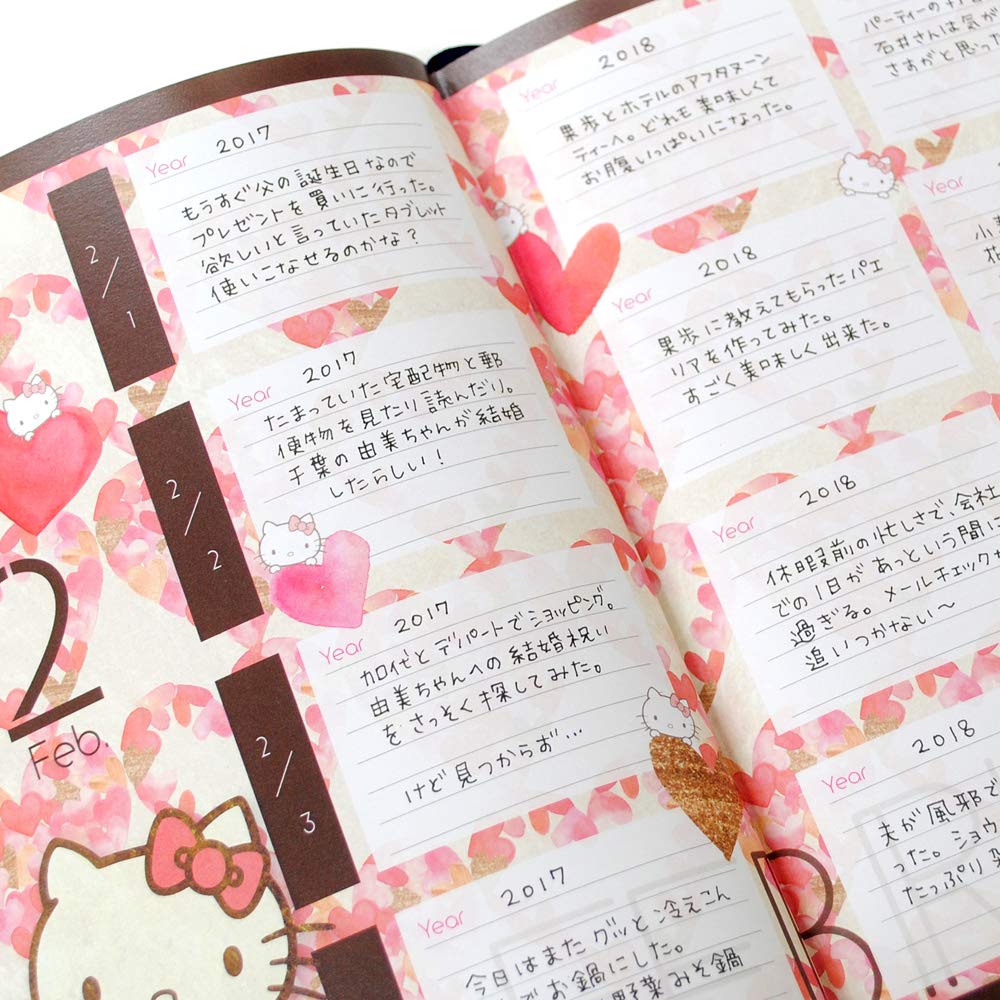 2
Feb.
2/1
Year 2017
もうすぐ父の誕生日なので
プレゼントを買いに行った。
欲しいと言っていたタブレット
使いこなせるのかな?
2/2
Year 2017
たまっていた宅配物と郵
便物を見たり読んだり。
千葉の由美ちゃんが結婚
したらしい!
2/3
Year 2017
加代とデパートでショッピング。
由美ちゃんへの結婚祝い
をさっそく探してみた。
けど見つからず…
Year 2017
今日はまたグッと冷えこん
でお鍋にした。
野菜みそ鍋
Year 2018
果歩とホテルのアフタヌーン
ティーへ。どれも美味しくて
お腹いっぱいになった。
Year 2018
果歩に教えてもらったパエ
リアを作ってみた。
すごく美味しく出来た。
Year 2018
休暇前の忙しさで、会社
での1日があっという間に
過ぎる。メールチェックが
追いつかない〜
Year 2018
夫が風邪で
った。ショウ
たっぷり
パーティーの
石井さんは気が
さすがと思った
Year
B